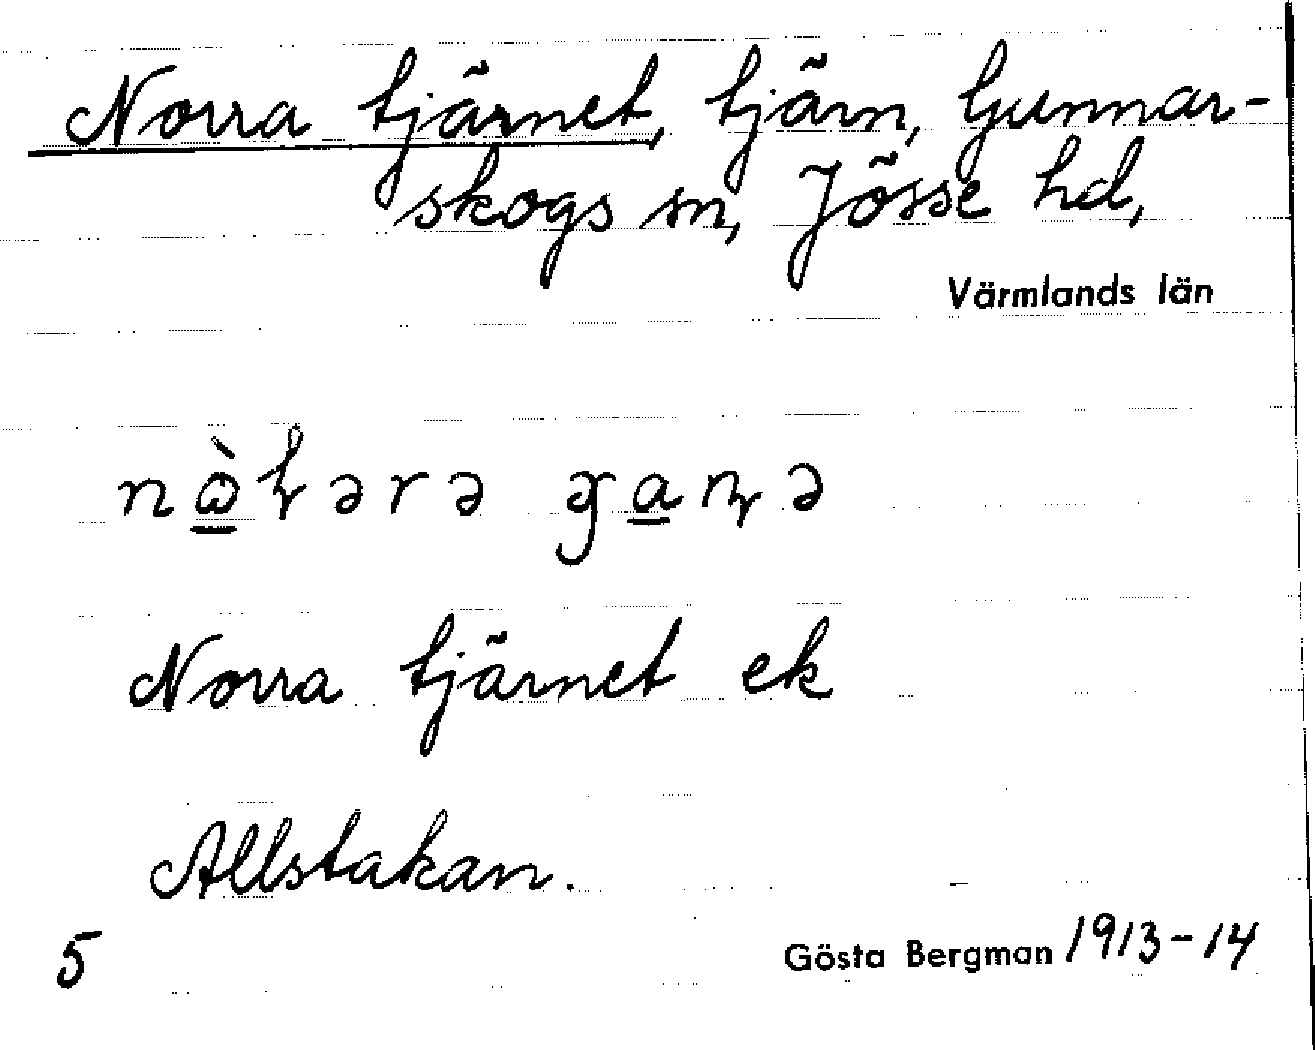 Norra tjärnet, tjärn, Gunnar-
skogs sn, Jösse hd,
Värmlands län
Norra tjärnet ek
Allstakan.
5 Gösta Bergman 1913-14